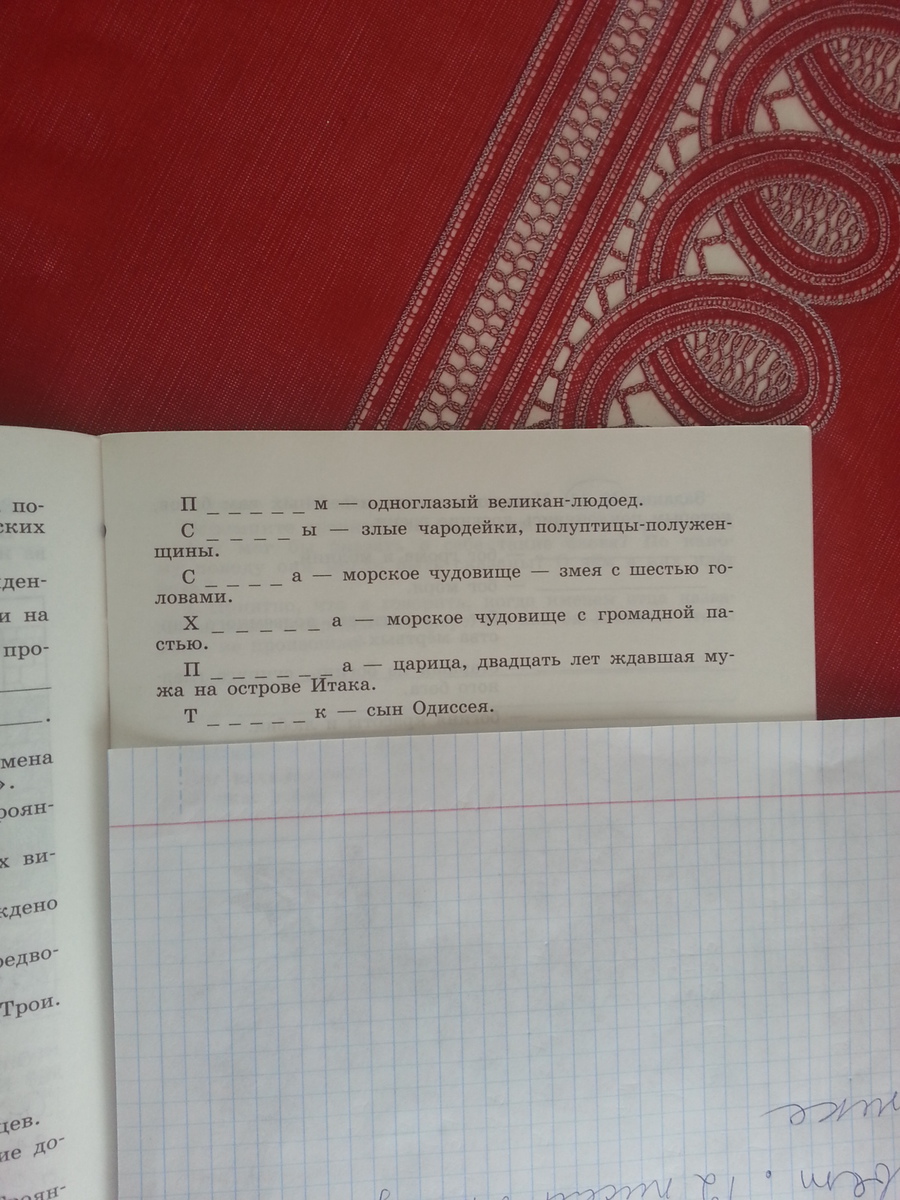 по-
ских
ден-
и на
про-
.
мена
».
роян-
х ви-
ждено
редво-
Трои.
цев.
ие до-
роян-
П _ _ _ _ _ м — одноглазый великан-людоед.
С _ _ _ _ ы — злые чародейки, полуптицы-полужен-
щины.
С _ _ _ _ а — морское чудовище — змея с шестью го-
ловами.
Х _ _ _ _ _ а — морское чудовище с громадной па-
стью.
П _ _ _ _ _ _ а — царица, двадцать лет ждавшая му-
жа на острове Итака.
Т _ _ _ _ _ к — сын Одиссея.